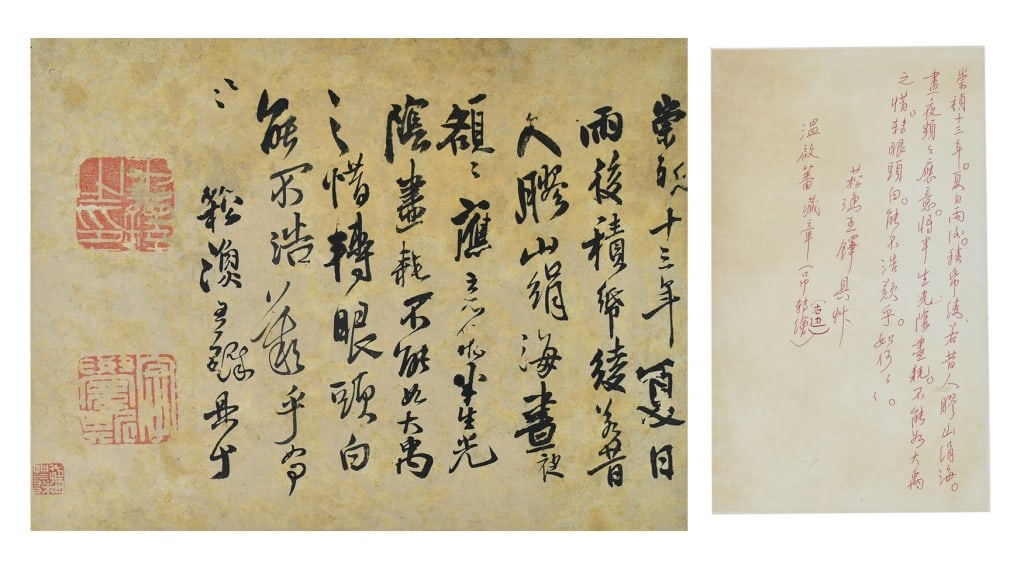 崇禎十三年夏日
雨後積帋綾若昔
人膠山絹海晝夜
額〻應意將半生光
陰盡耗不能如大禹
之惜轉眼頭白
能不浩歎乎如何
〻〻
菘漁王鐸具艸
王鐸之印
崇禎十三年。夏日雨後。積帋綾若昔人膠山絹海。
晝夜額〻應意。將半生光陰盡耗。不能如大禹
之惜。轉眼頭白。能不浩歎乎。如何〻〻。
菘漁王鐸具艸
溫啟蕃藏章